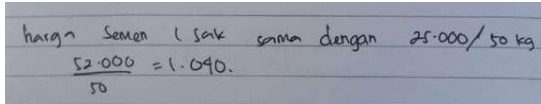 harga Semen 1 sak sama dengan 25.000/50 kg
52.000 = 1.040.
50